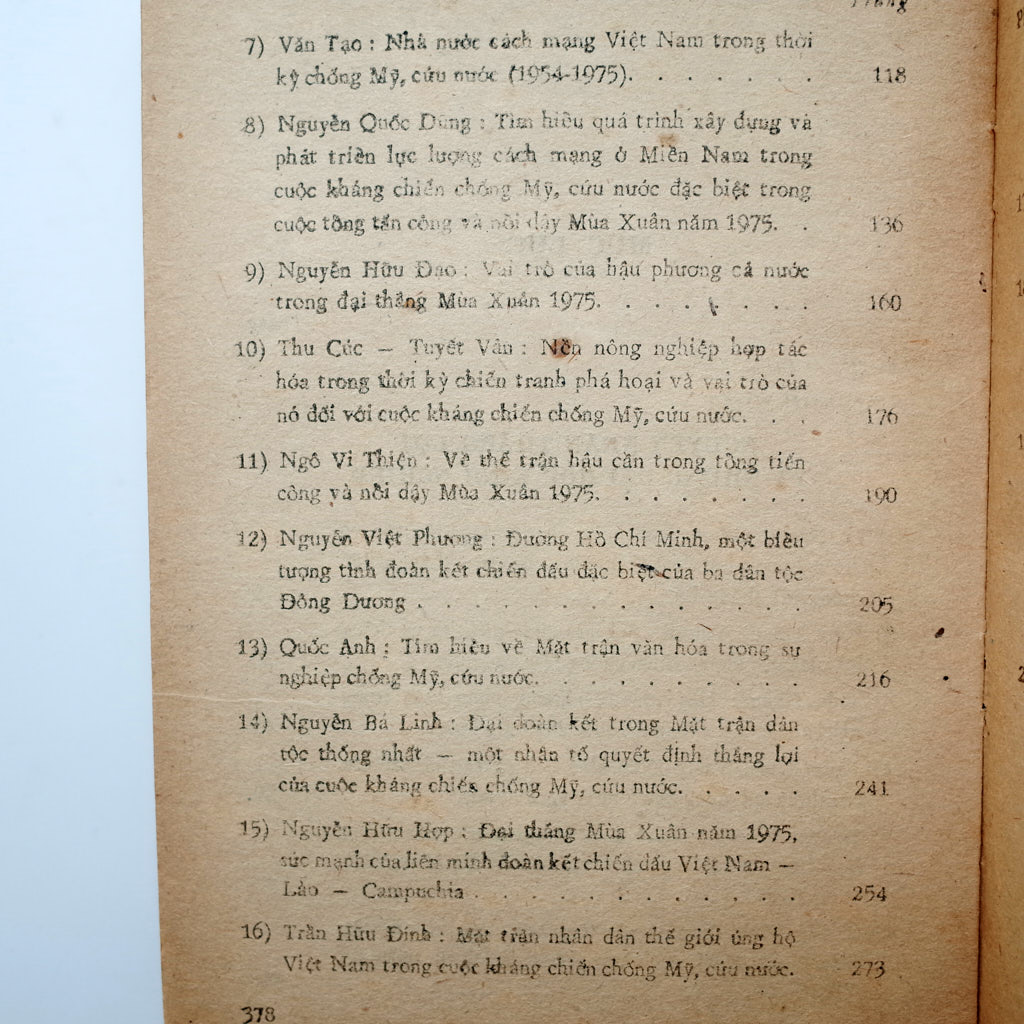 Trang
7) Văn Tạo : Nhà nước cách mạng Việt Nam trong thời
kỳ chống Mỹ, cứu nước (1954-1975). . . . . . . 118
8) Nguyễn Quốc Dũng : Tìm hiểu quá trình xây dựng và
phát triển lực lượng cách mạng ở Miền Nam trong
cuộc kháng chiến chống Mỹ, cứu nước đặc biệt trong
cuộc tổng tấn công và nổi dậy Mùa Xuân năm 1975. . 136
9) Nguyễn Hữu Đạo : Vai trò của hậu phương cả nước
trong đại thắng Mùa Xuân 1975. . . . . . . 160
10) Thu Cúc — Tuyết Vân : Nền nông nghiệp hợp tác
hóa trong thời kỳ chiến tranh phá hoại và vai trò của
nó đối với cuộc kháng chiến chống Mỹ, cứu nước. . . 176
11) Ngô Vi Thiện : Về thế trận hậu cần trong tổng tiến
công và nổi dậy Mùa Xuân 1975. . . . . . . . 190
12) Nguyễn Việt Phương : Đường Hồ Chí Minh, một biểu
tượng tình đoàn kết chiến đấu đặc biệt của ba dân tộc
Đông Dương . . . . . . . . . . . . . . 205
13) Quốc Anh : Tìm hiểu về Mặt trận văn hóa trong sự
nghiệp chống Mỹ, cứu nước. . . . . . . . . . 216
14) Nguyễn Bá Linh : Đại đoàn kết trong Mặt trận dân
tộc thống nhất — một nhân tố quyết định thắng lợi
của cuộc kháng chiến chống Mỹ, cứu nước. . . . . 241
15) Nguyễn Hữu Hợp : Đại thắng Mùa Xuân năm 1975,
sức mạnh của liên minh đoàn kết chiến đấu Việt Nam —
Lào — Campuchia . . . . . . . . . . . . 254
16) Trần Hữu Đính : Mặt trận nhân dân thế giới ủng hộ
Việt Nam trong cuộc kháng chiến chống Mỹ, cứu nước. 273
378